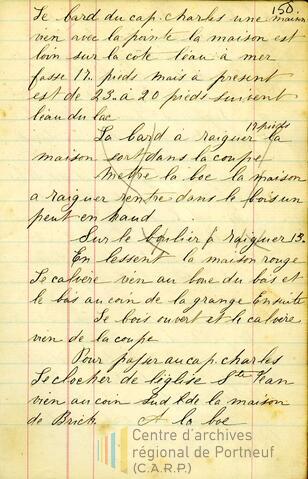 150
Le bard du cap. charles une maison
vien avec la pointe la maison est
loin sur la côte l'eau à mer
fasse 17. pieds mais à présent
est de 23. à 20 pieds suivent
l'eau du lac
17 pieds
La bard à raiguer la
maison sort dans la coupe
Mettre la boe la maison
a raiguer rentre dans le bois un
peut en haud
Sur le boulier à raiguer 13.
En lessent la maison rouge
Le calvère vien au boue du bas et
le bas au coin de la grange Ensuite
Le bois ouvert et le calvère
vien de la coupe
Pour passer au cap. charles
Le clocher de l'église Ste Jean
vien au coin sud de la maison
de Brick A la boe
Centre d'archives
régional de Portneuf
(C.A.R.P.)